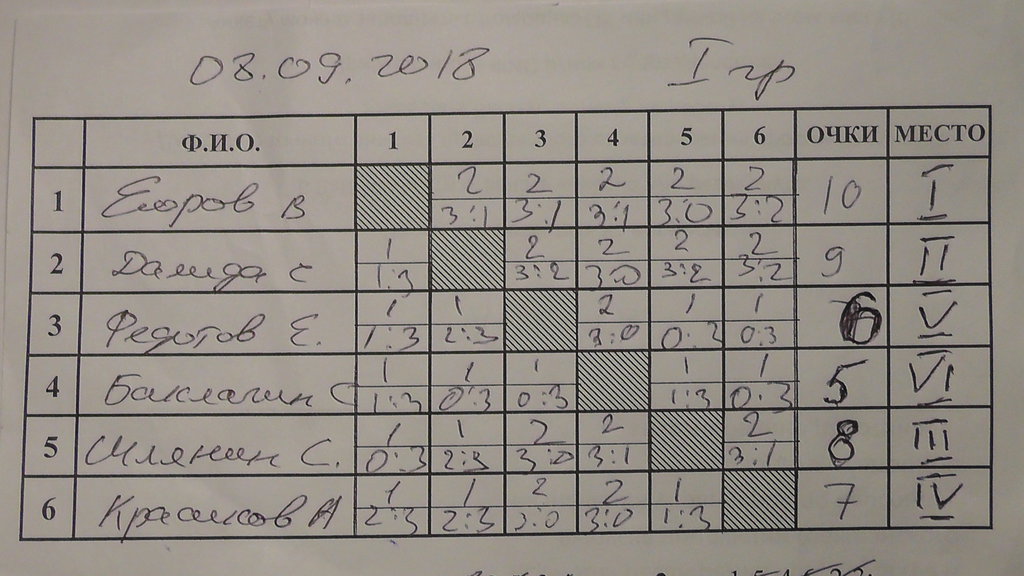 08.09.2018 I гр
Ф.И.О. 1 2 3 4 5 6 ОЧКИ МЕСТО
1 Егоров В 2 2 2 2 2 10 I
3:1 3:1 3:1 3:0 3:2
2 Далида С 1 2 2 2 2 9 II
1:3 3:2 3:0 3:2 3:2
3 Федотов Е. 1 1 2 1 1 6 V
1:3 2:3 3:0 0:3 0:3
4 Баклагин С 1 1 1 1 1 5 VI
1:3 0:3 0:3 1:3 0:3
5 Шлянин С. 1 1 2 2 2 8 III
0:3 2:3 3:0 3:1 3:1
6 А 1 1 2 2 1 7 IV
2:3 2:3 3:0 3:0 1:3